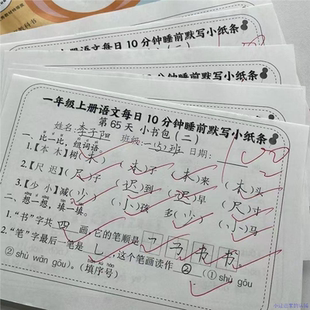 一年级上册语文每日10分钟睡前默写小纸条
一年级上册语文每日10分钟睡前默写小纸条
第65天 小书包(二)
姓名: 班级: 一(5)班 日期:
一、比一比,组词语。
1.【木 本】树(木) (本)子 (本)来 (木)头
2.【尺 迟】(尺)子 (迟)到 (迟)早 (尺)寸
3.【少 小】减(少) (小)孩 多(少) (小)马
二、想一想,填一填。
1.“书”字共 四 画,它的笔顺是
2.“笔”字最后一笔是 乚 ,这个笔画读作 ② (① shù gōu
② shù wān gōu)。(填序号)